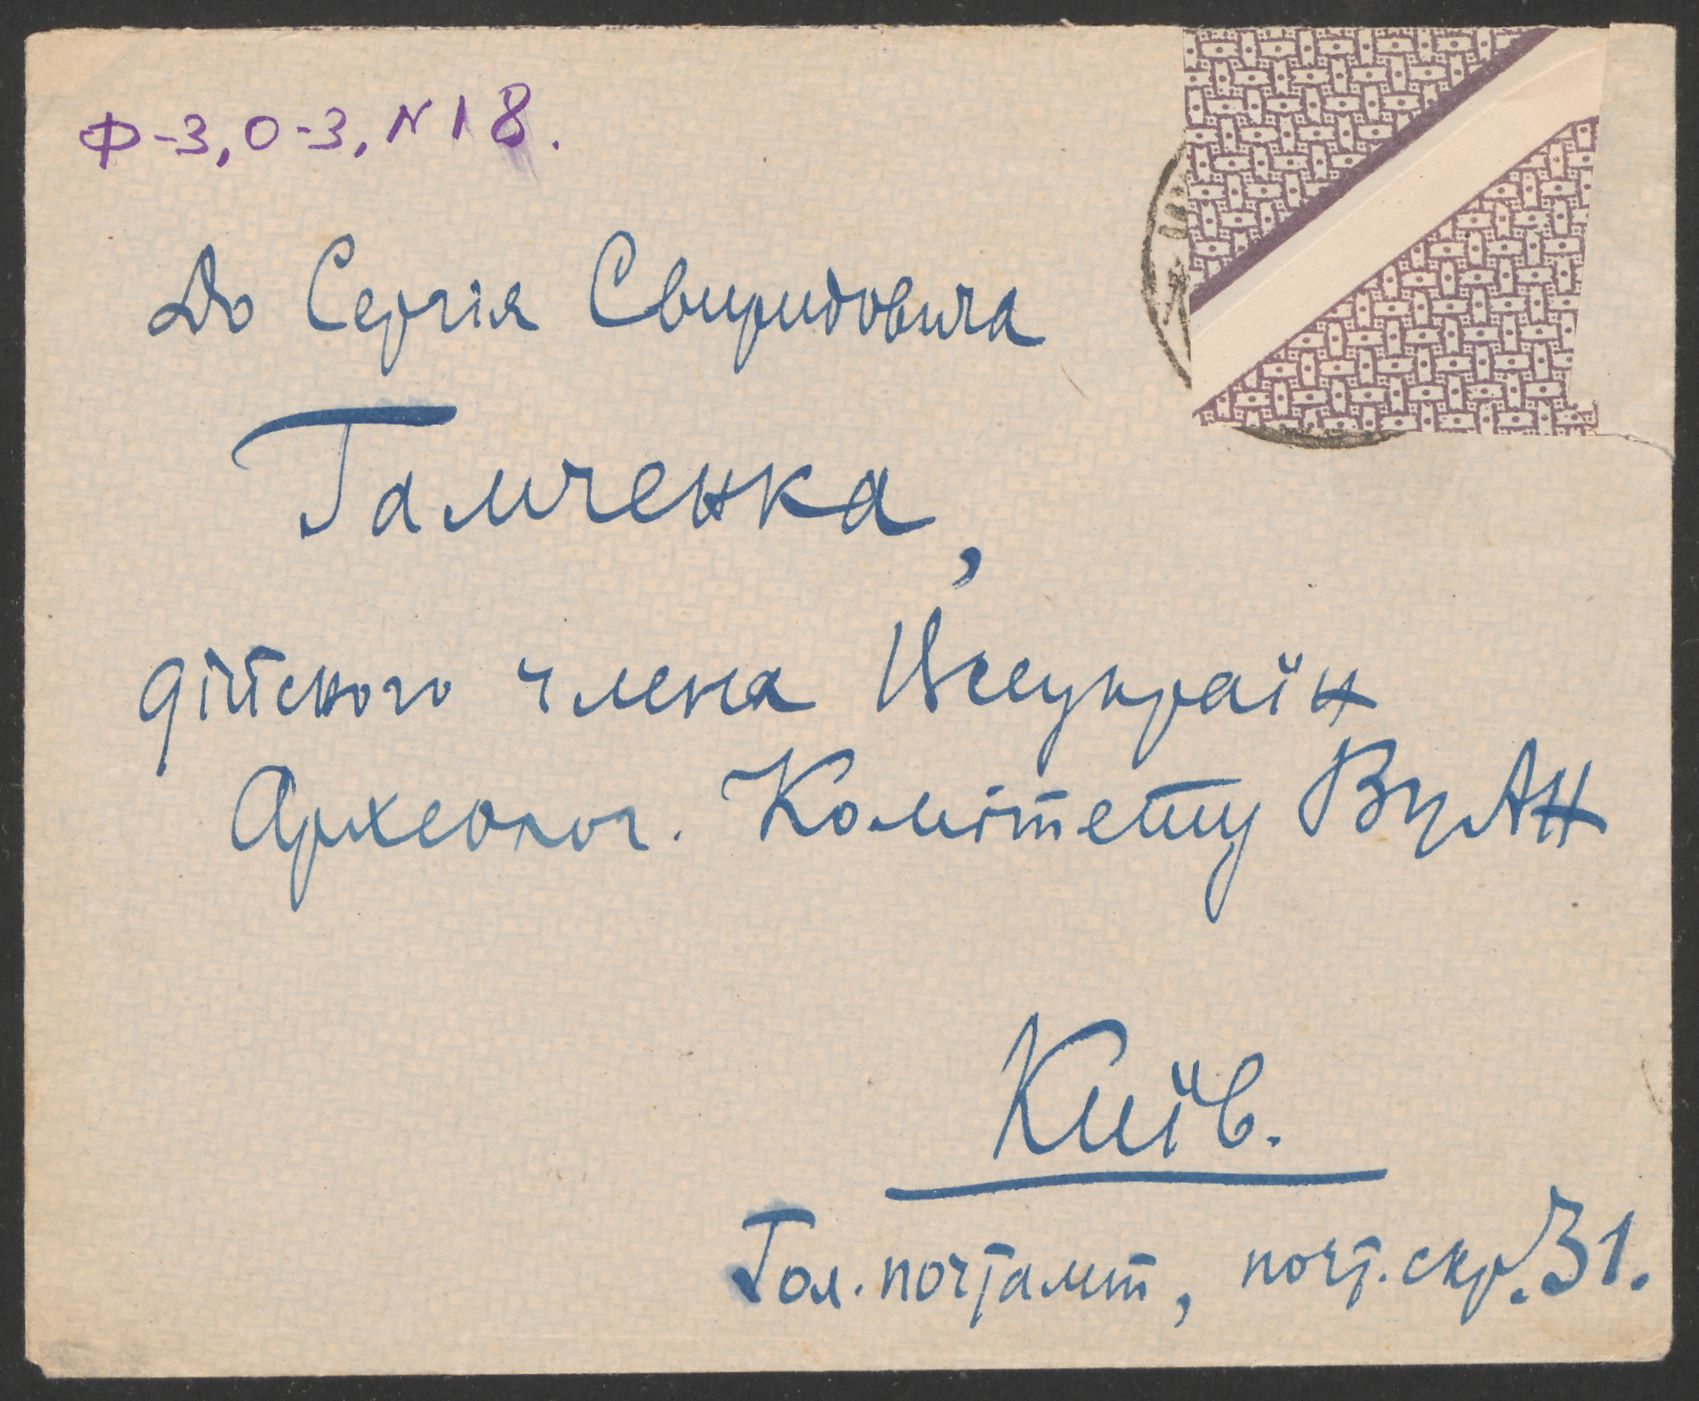 Ф-3, О-3, N 18.
До Сергія Свиридовича
Гамченка,
дійсного члена Всеукраїн
Археолог. Комітету ВУАН
Київ.
Гол. почтамт, почт. скр. 31.